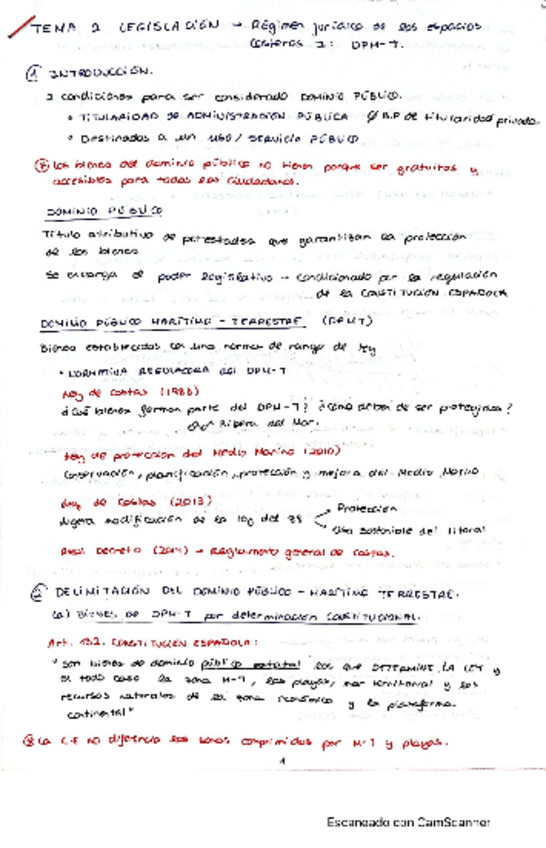 TEMA 2 LEGISLACIÓN → Régimen jurídico de los espacios
costeros I: DPM-T.
① INTRODUCCIÓN.
2 condiciones para ser considerado DOMINIO PÚBLICO.
• TITULARIDAD DE ADMINISTRACIÓN PÚBLICA ∅ B.P de titularidad privada.
• Destinados a un USO/ SERVICIO PÚBLICO.
⊛ Los bienes del dominio público no tienen porque ser gratuitos y
accesibles para todos los ciudadanos.
DOMINIO PÚBLICO
Título atributivo de potestades que garantizan la protección
de los bienes
Se encarga el poder legislativo → condicionado por la regulación
de la CONSTITUCIÓN ESPAÑOLA
DOMINIO PÚBLICO MARÍTIMO - TERRESTRE (DPMT)
Bienes establecidos con una norma de rango de ley
• NORMATIVA REGULADORA del DPM-T
Ley de costas (1988)
¿Qué bienes forman parte del DPM-T? ¿Cómo deben de ser protegidos?
Ribera del Mar.
Ley de protección del Medio Marino (2010)
Conservación, planificación, protección y mejora del Medio Marino
Ley de Costas (2013)
Ligera modificación de la ley del 88
Protección
Uso sostenible del litoral
Real Decreto (2014) → Reglamento general de Costas.
② DELIMITACIÓN DEL DOMINIO PÚBLICO - MARÍTIMO TERRESTRE.
(a) BIENES DE DPM-T por determinación CONSTITUCIONAL.
Art. 132. CONSTITUCIÓN ESPAÑOLA:
"Son bienes de dominio público estatal los que DETERMINE LA LEY y
en todo caso la zona M-T, las playas, mar territorial y los
recursos naturales de la zona económica y la plataforma
continental"
⊛ La C.E no diferencia las zonas comprimidas por M-T y playas.
1
Escaneado con CamScanner